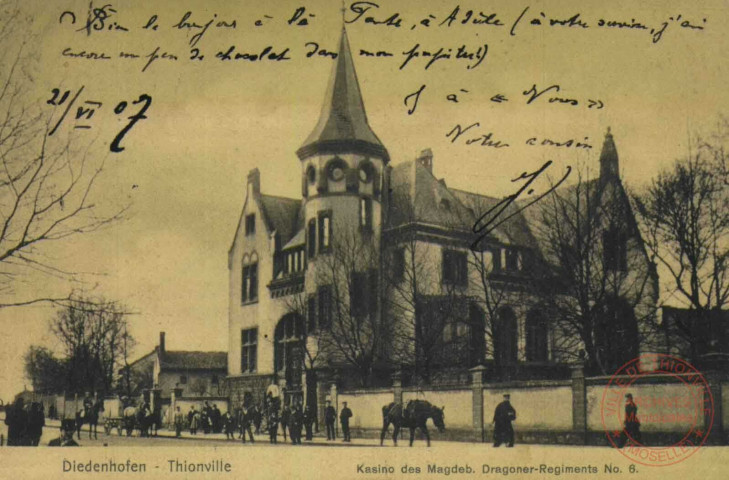 Bien le bonjour à la Tante, à Adèle (à votre service, j'ai
encore un peu de chocolat dans mon pupitre!)
J à « Nous »
21/VI 07
Votre cousin
J.
Diedenhofen - Thionville
Kasino des Magdeb. Dragoner-Regiments No. 6.
VILLE DE THIONVILLE
MOSELLE